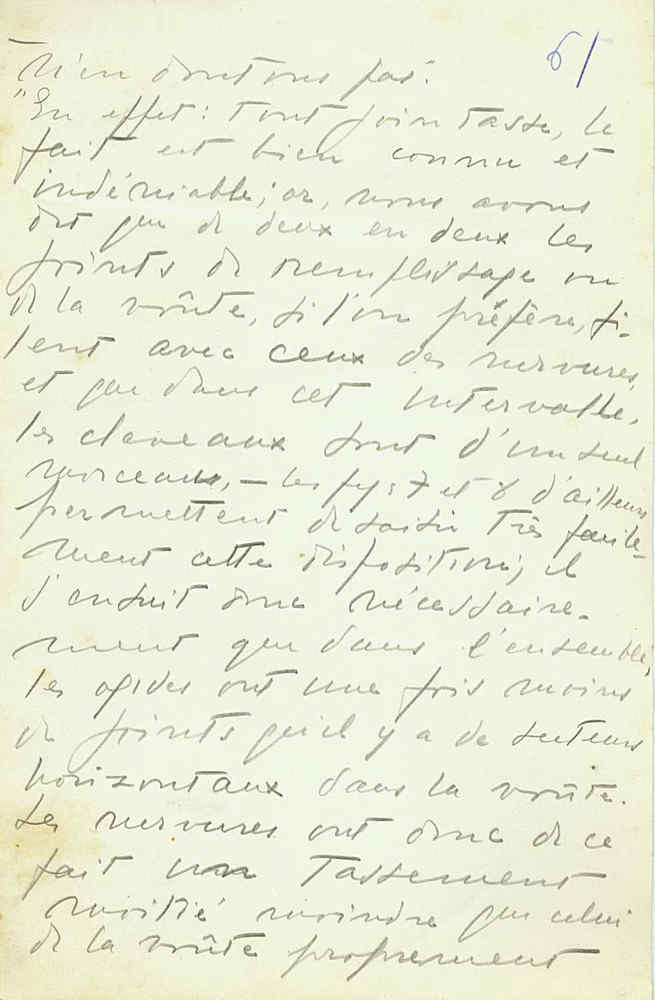 61
n'en doutons pas".
"En effet: tout joint tasse, le
fait est bien connu et
indéniable; or, nous avons
dit que de deux en deux les
joints de remplissage ou
de la voûte, si l'on préfère, fi-
lent avec ceux des nervures,
et que dans cet intervalle,
les claveaux sont d'un seul
morceau, — les fig: 7 et 8 d'ailleurs
permettent de saisir très facile-
ment cette disposition; il
s'ensuit donc nécessaire-
ment que dans l'ensemble,
les ogives ont une fois moins
de joints qu'il y a de
horizontaux dans la voûte.
Les nervures ont donc de ce
fait un Tassement
moitié moindre que celui
de la voûte proprement